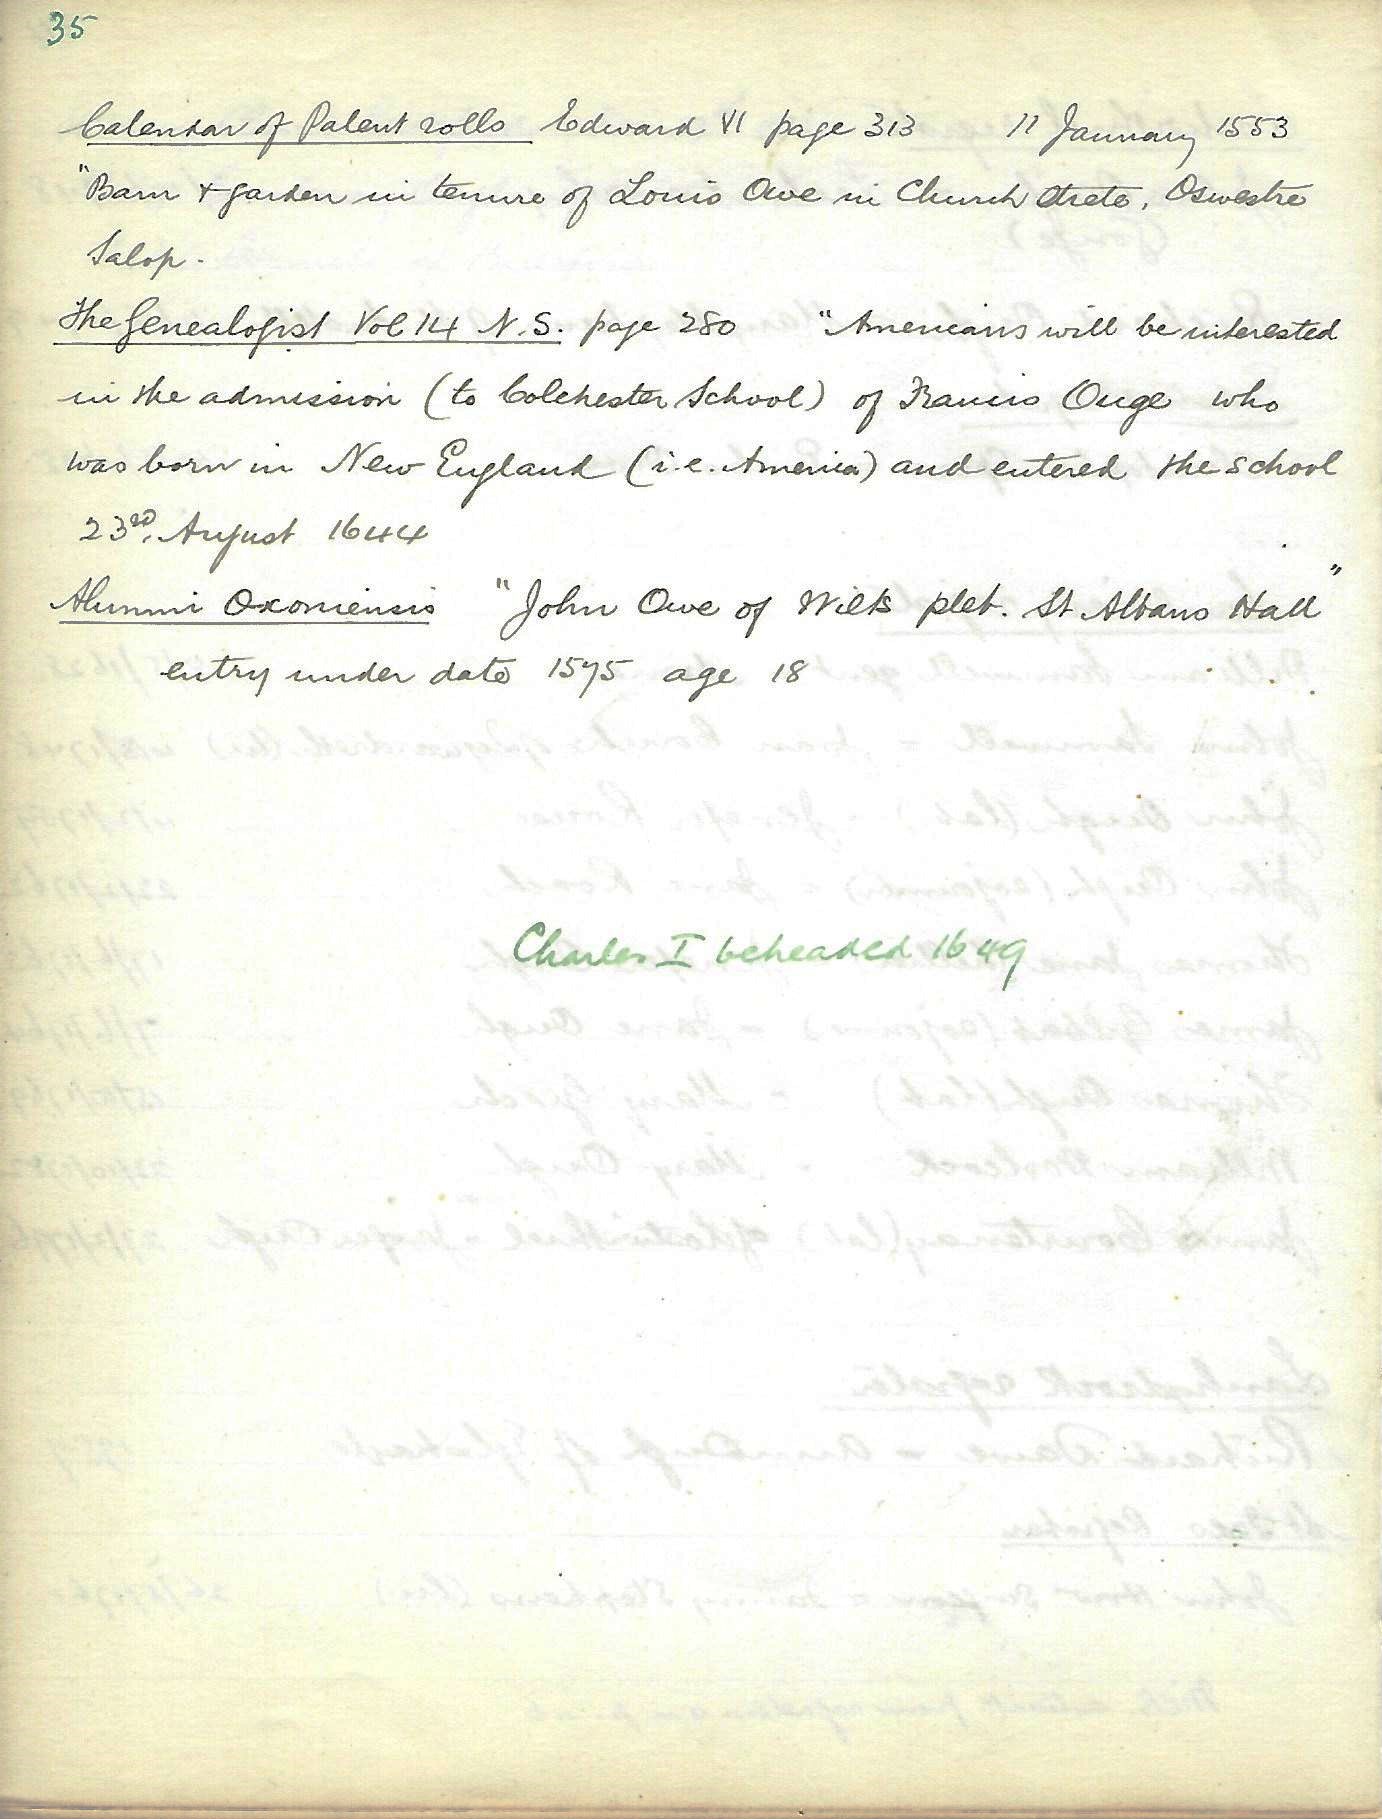 35
Calendar of Patent rolls Edward VI page 313 11 January 1553
"Barn & garden in tenure of Louis Owe in Church Strete, Oswestre
Salop.
The Genealogist Vol 14 N.S. page 280 "Americans will be interested
in the admission (to Colchester School) of Francis Ouge who
was born in New England (i.e. America) and entered the school
23rd. August 1644
Alumni Oxoniensis "John Owe of Wilts pleb. St Albans Hall"
entry under date 1575 age 18
Charles I beheaded 1649